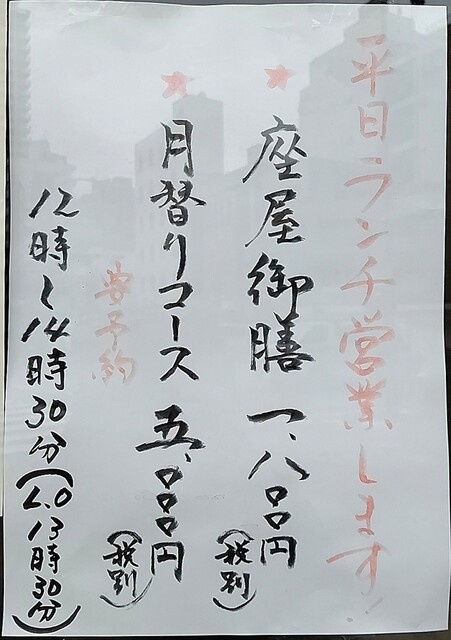 平日ランチ営業します!
★座屋御膳 一、八〇〇円
(税別)
★月替りコース 五、〇〇〇円
(税別)
要予約
12時〜14時30分(L.O 13時30分)